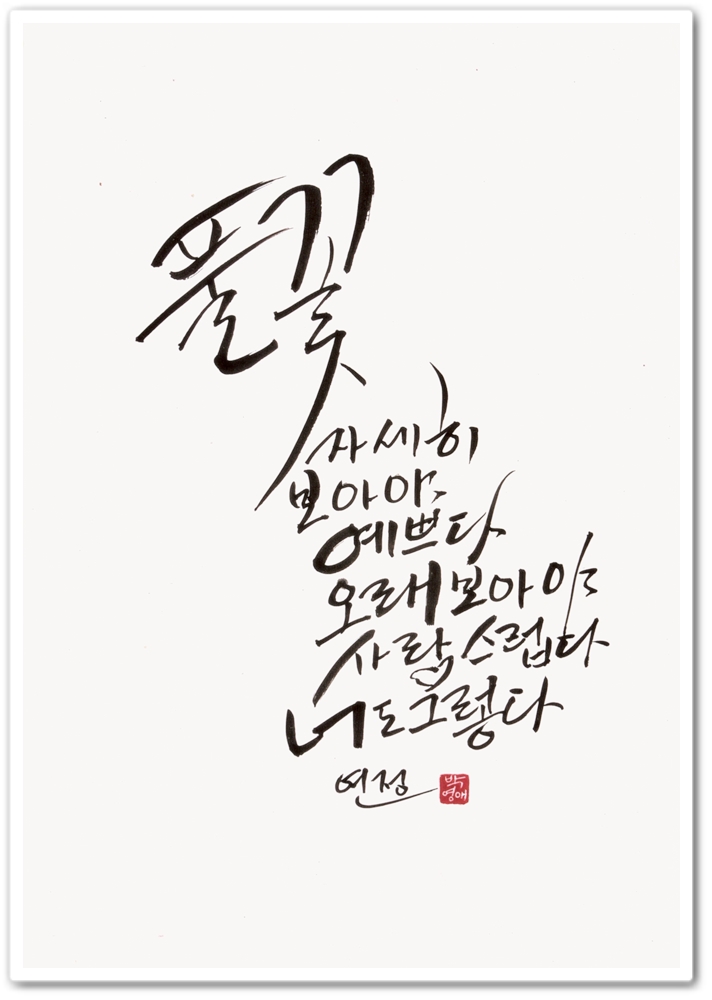 풀꽃
자세히
보아야
예쁘다
오래 보아야
사랑스럽다
너도 그렇다
연정
박영애